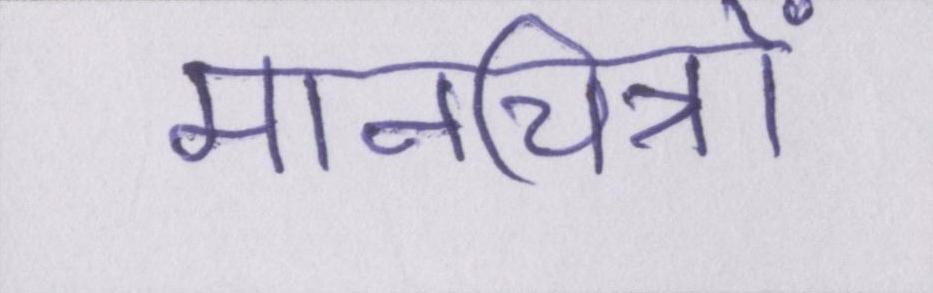 मानचित्रों